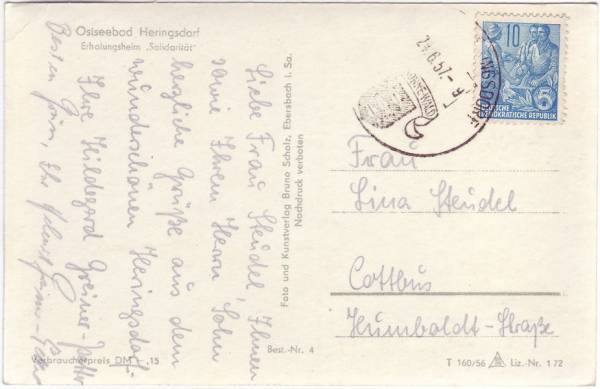 Ostseebad Heringsdorf
Erholungsheim „Solidarität"
Liebe Frau Steudel, Ihnen
sowie Ihrem Herrn Sohn
herzliche Grüße aus dem
wunderschönen Heringsdorf.
Ihre Hildegard
Besten Ihr
Foto und Kunstverlag Bruno Scholz, Ebersbach i. Sa.
Nachdruck verboten
Verbraucherpreis DM -,15
Best.-Nr. 4
24.6.57.-
10
5
DEUTSCHE
DEMOKRATISCHE REPUBLIK
Frau
Lina Steudel
Cottbus
Humboldt-Straße
T 160/56
Liz.-Nr. 172